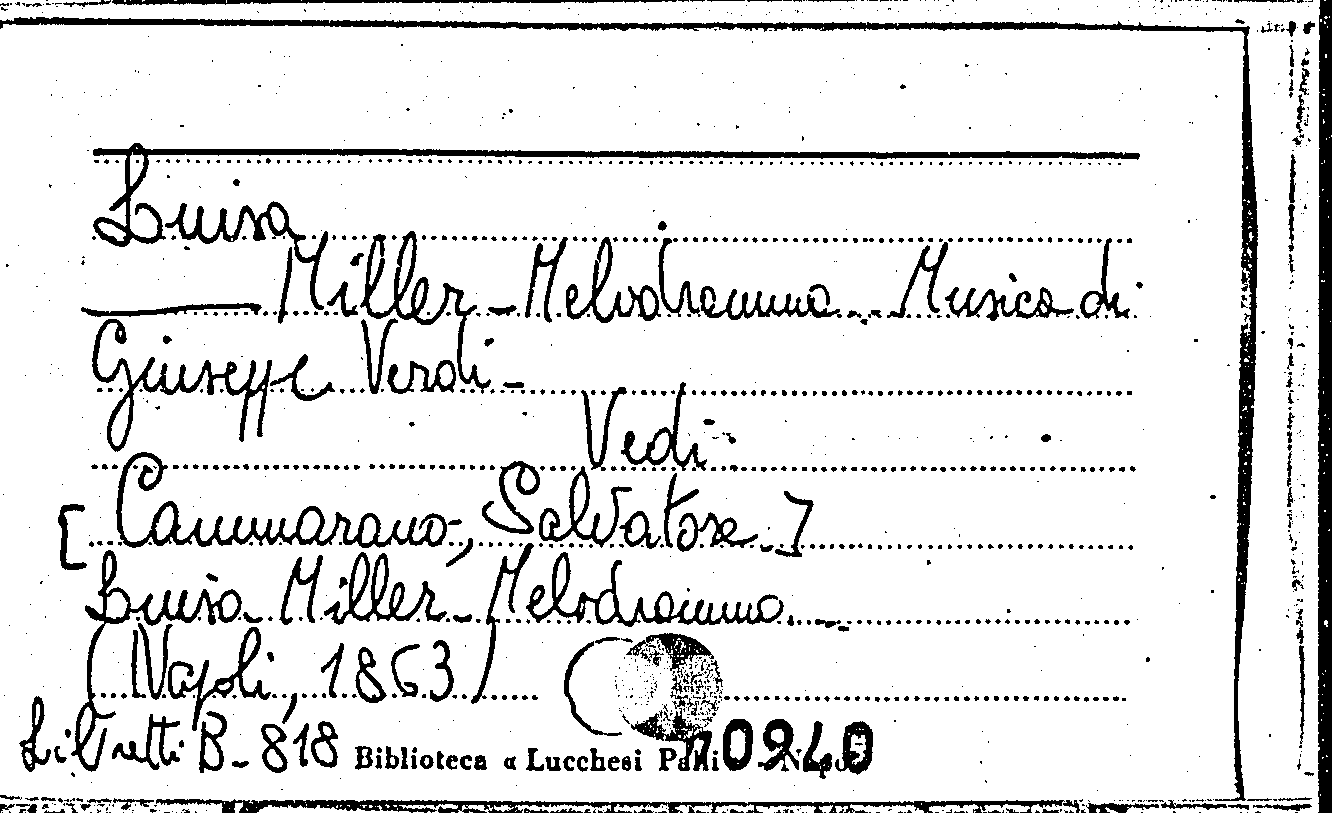 Luisa
Miller - Melodramma - Musica di
Giuseppe Verdi -
Vedi
[Cammarano, Salvatore]
Luisa Miller - Melodramma -
(Napoli, 1863)
Libretti B - 818 Biblioteca « Lucchesi Palli